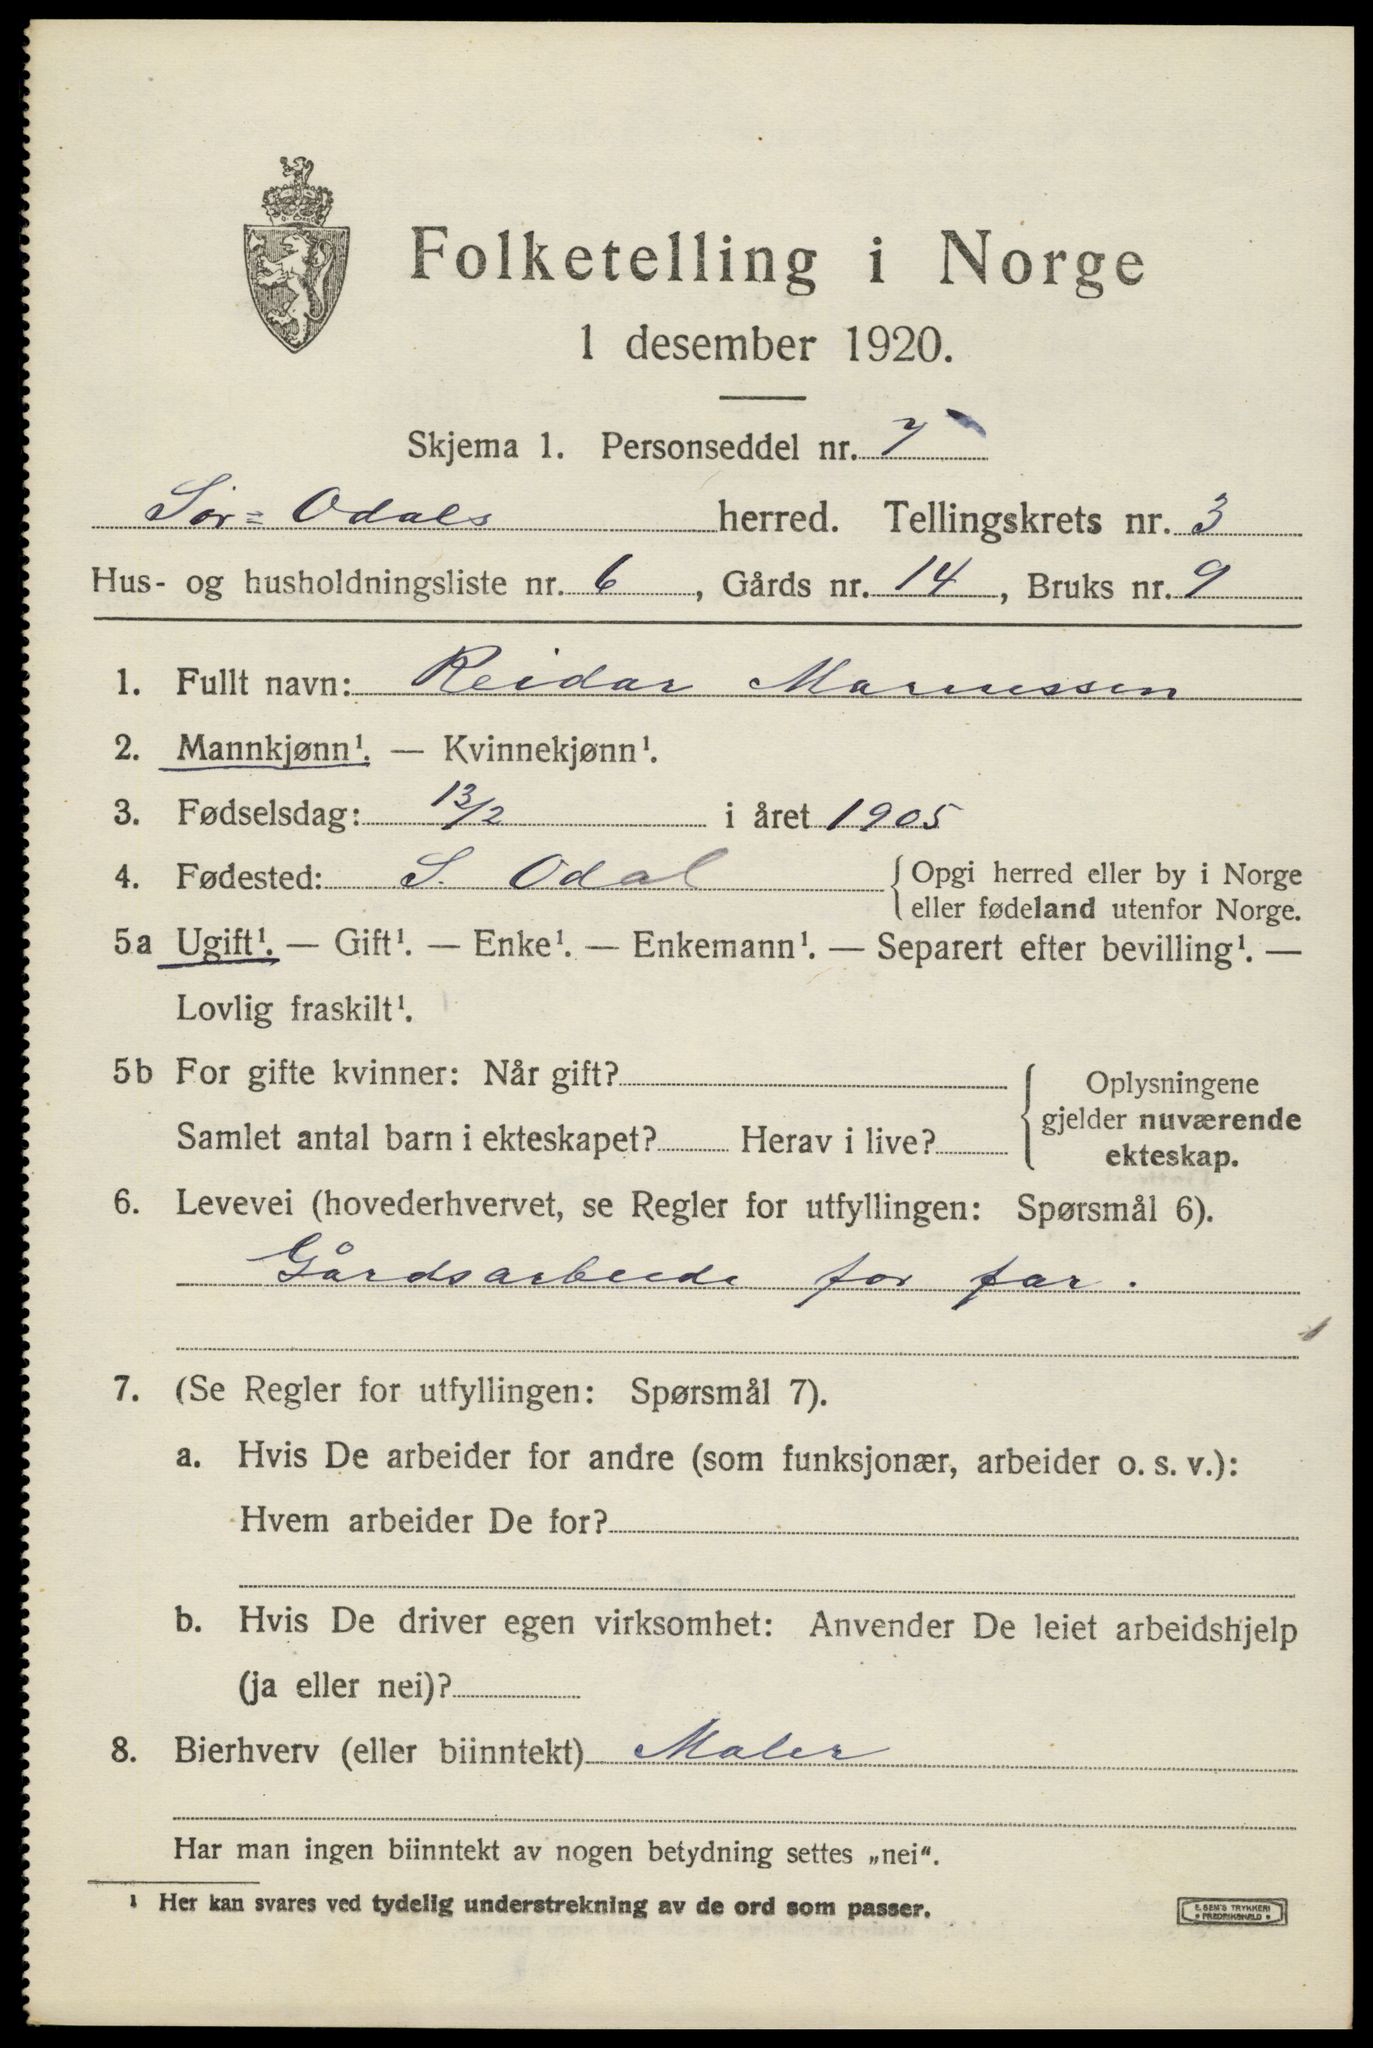 Folketelling i Norge
1 desember 1920.
Skjema 1. Personseddel nr. 7
Sør=Odals herred. Tellingskrets nr. 3
Hus- og husholdningsliste nr. 6, Gårds nr. 14, Bruks nr. 9
1. Fullt navn: Reidar Mariussen
2. Mannkjønn¹. — Kvinnekjønn¹.
3. Fødselsdag: 13/2 i året 1905
4. Fødested: S. Odal { Opgi herred eller by i Norge
eller fødeland utenfor Norge.
5a Ugift¹. — Gift¹. — Enke¹. — Enkemann¹. — Separert efter bevilling¹. —
Lovlig fraskilt¹.
5b For gifte kvinner: Når gift?
Samlet antal barn i ekteskapet? Herav i live?
{ Oplysningene
gjelder nuværende
ekteskap.
6. Levevei (hovederhvervet, se Regler for utfyllingen: Spørsmål 6).
Gårdsarbeide for far.
7. (Se Regler for utfyllingen: Spørsmål 7).
a. Hvis De arbeider for andre (som funksjonær, arbeider o. s. v.):
Hvem arbeider De for?
b. Hvis De driver egen virksomhet: Anvender De leiet arbeidshjelp
(ja eller nei)?
8. Bierhverv (eller biinntekt) Maler
Har man ingen biinntekt av nogen betydning settes „nei".
¹ Her kan svares ved tydelig understrekning av de ord som passer.
E. SEM'S TRYKKERI
• FREDRIKSHALD •